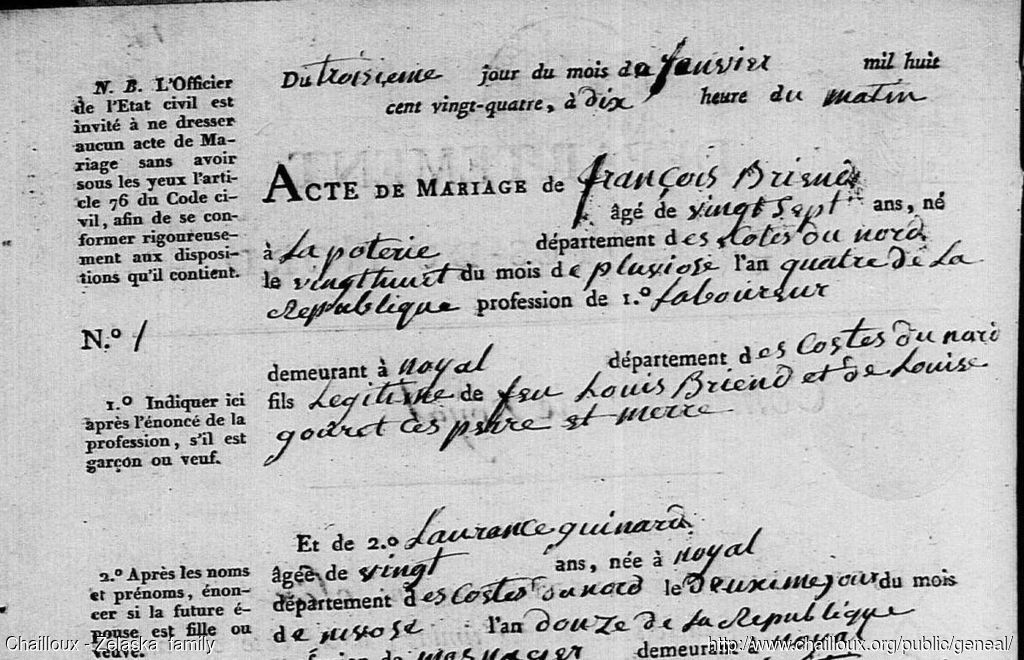 Du troisieme jour du mois de Janvier mil huit
cent vingt-quatre, à dix heure du matin
N. B. L'Officier
de l'Etat civil est
invité à ne dresser
aucun acte de Ma-
riage sans avoir
sous les yeux l'arti-
cle 76 du Code ci-
vil, afin de se con-
former rigoureuse-
ment aux disposi-
tions qu'il contient.
ACTE DE MARIAGE de françois Briend
âgé de vingt sept ans, né
à La poterie département des Cotes du nord
le vingt huit du mois de pluviose l'an quatre de La
Republique profession de 1.º Laboureur
N.º 1
demeurant à noyal département des Costes du nord
fils Legitime de feu Louis Briend et de Louise
gouret ces perre et merre
1.º Indiquer ici
après l'énoncé de la
profession, s'il est
garçon ou veuf.
Et de 2.º Laurance guinard
âgée de vingt ans, née à noyal
département des Costes du nord le deuxime jour du mois
de nivose l'an douze de La Republique
de menager demeurant à noyal
2.º Après les noms
et prénoms, énon-
cer si la future é-
pouse est fille ou
veuve.
Chailloux - Zelaska family
http://www.chailloux.org/public/geneal/